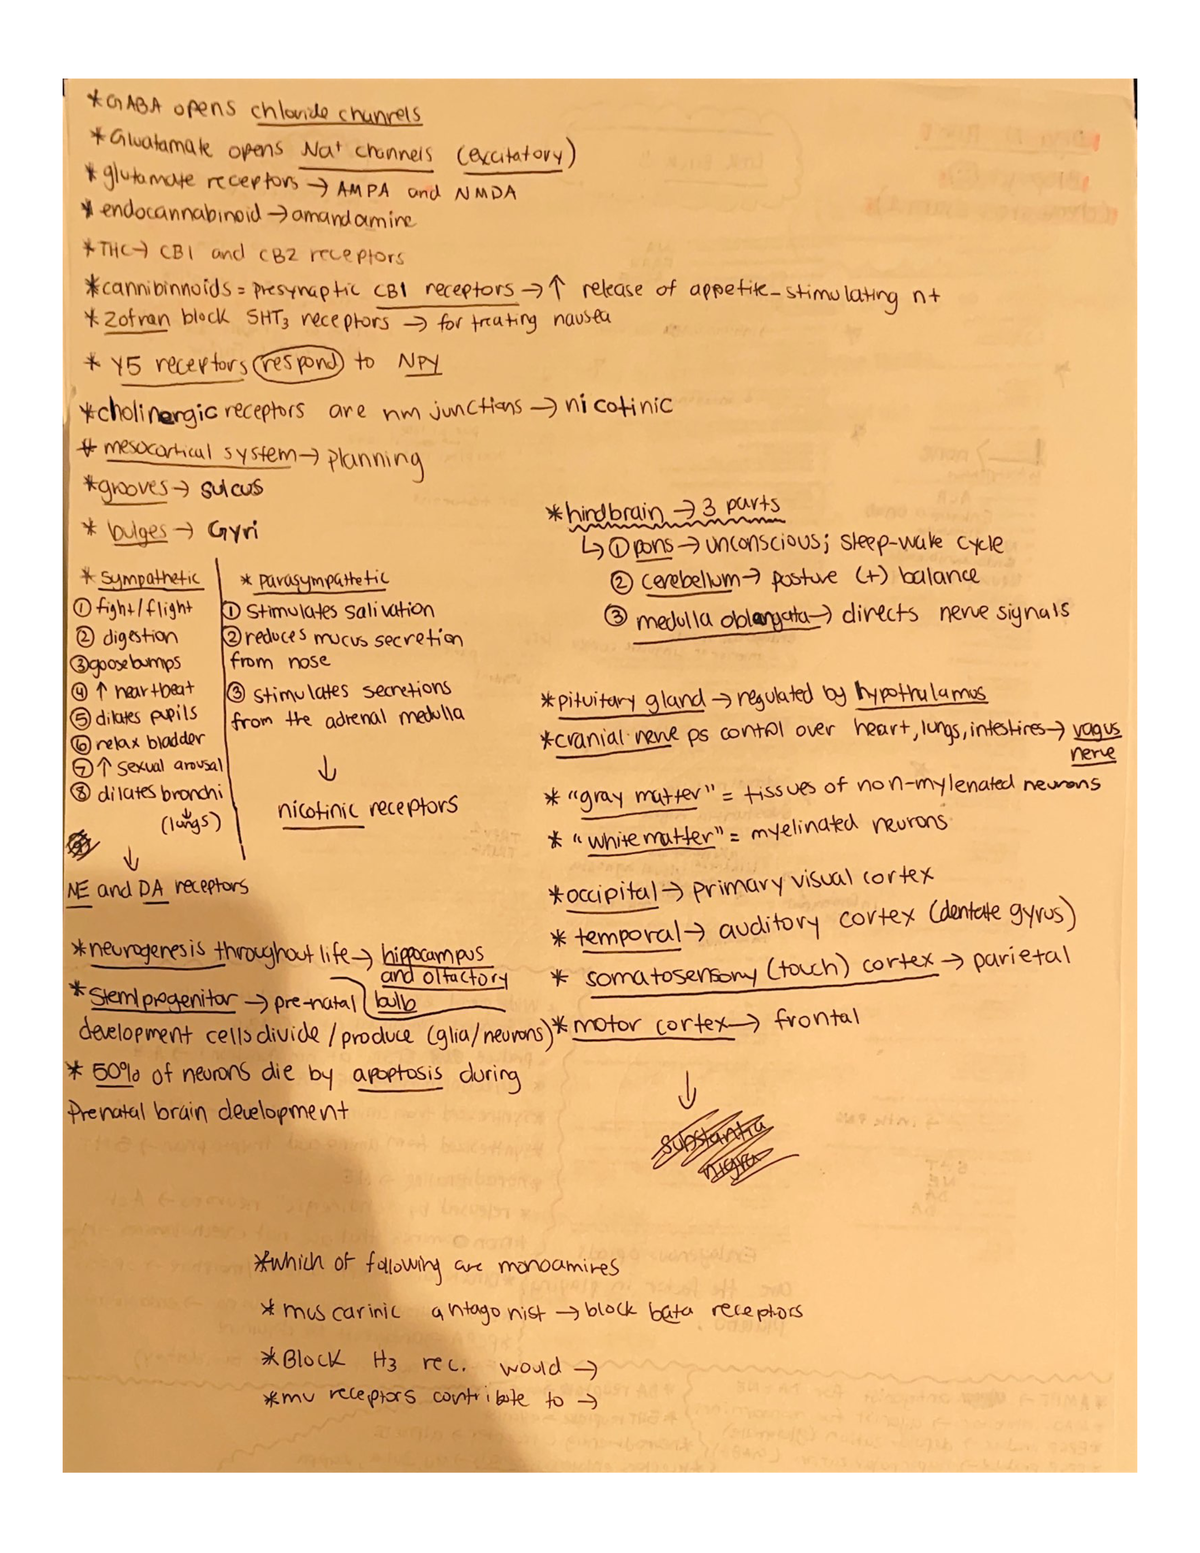 *GABA opens chloride channels
*Gluatamate opens Na+ channels (excitatory)
*glutamate receptors → AMPA and NMDA
*endocannabinoid → amandamine
*THC → CB1 and CB2 receptors
*cannibinnoids = presynaptic CB1 receptors → ↑ release of appetite-stimulating nt
*Zofran block 5HT3 receptors → for treating nausea
* Y5 receptors respond to NPY
*cholinergic receptors are nm junctions → nicotinic
* mesocortical system → planning
*grooves → sulcus
* bulges → Gyri
* sympathetic
① fight/flight
② digestion
③ goosebumps
④ ↑ heartbeat
⑤ dilates pupils
⑥ relax bladder
⑦ ↑ sexual arousal
⑧ dilates bronchi
(lungs)
↓
NE and DA receptors
* parasympathetic
① Stimulates salivation
② reduces mucus secretion
from nose
③ stimulates secretions
from the adrenal medulla
↓
nicotinic receptors
*neurogenesis throughout life → hippocampus
and olfactory
bulb
*Stem/progenitor → pre-natal
development cells divide / produce (glia/neurons)
* 50% of neurons die by apoptosis during
Prenatal brain development
*hindbrain → 3 parts
↳ ① pons → unconscious; sleep-wake cycle
② cerebellum → posture (+) balance
③ medulla oblongata → directs nerve signals
*pituitary gland → regulated by hypothalamus
*cranial nerve ps control over heart, lungs, intestines → vagus
nerve
* "gray matter" = tissues of non-mylenated neurons
* "white matter" = myelinated neurons
*occipital → primary visual cortex
* temporal → auditory cortex (dentate gyrus)
* somatosensory (touch) cortex → parietal
* motor cortex → frontal
↓
substantia
nigra
*which of following are monoamines
* muscarinic antagonist → block bata receptors
*Block H3 rec. would →
*mu receptors contribute to →